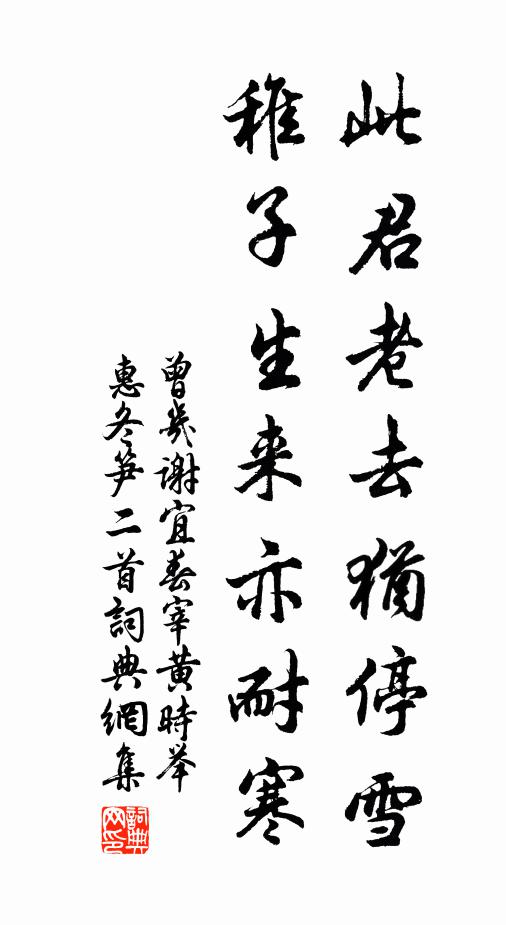 此君老去猶停雪
稚子生来亦耐寒
曾幾謝宜春宰黄時举
惠冬笋二首詞典網集
詞典网印